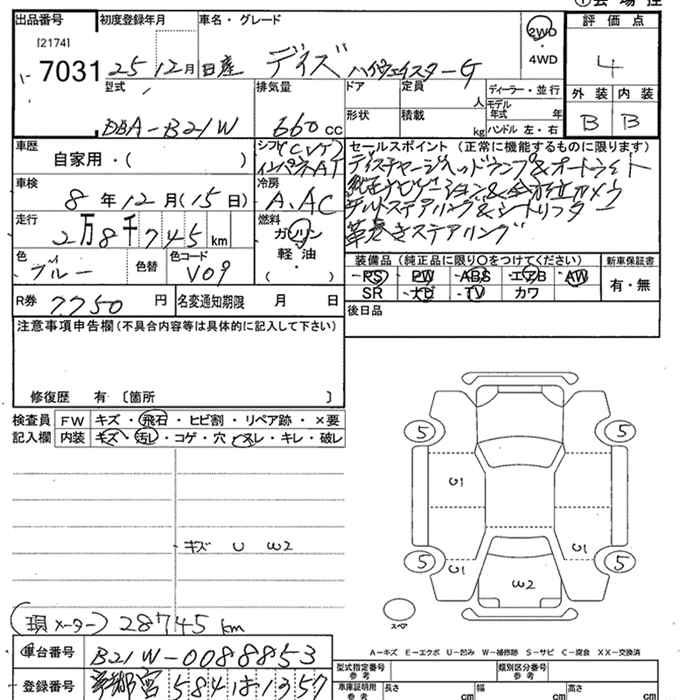 出品番号 初度登録年月 車名・グレード 評価点
[2174]
7031 25 12月 日産 デイズ ハイウェイスターG 2WD・4WD 4
型式 排気量 ドア 定員 人 ディーラー・並行 外装 内装
DBA-B21W 660cc 形状 積載 kg モデル年式 年 ハンドル 左・右 B B
車歴 シフト セールスポイント (正常に機能するものに限ります)
自家用・( ) (CVT) インパネAT ディスチャージヘッドランプ&オートライト
車検 冷房 純正ナビゲーション&全方位カメラ
8年12月(15日) A.AC チルトステアリング&シートリフター
走行 燃料 革巻きステアリング
2万8千745km ガソリン 軽油 ・ ( )
色 色替 色コード 装備品 (純正品に限り○をつけてください) 新車保証書
ブルー V09 PS PW ABS エアB AW 有・無
SR ナビ TV カワ
R券 7750円 名変通知期限 月 日 後日品
注意事項申告欄(不具合内容等は具体的に記入して下さい)
修復歴 有 [箇所 ]
検査員 FW キズ・飛石・ヒビ割・リペア跡・×要
記入欄 内装 キズ・汚レ・コゲ・穴・ヌレ・キレ・破レ
5 5
U1
キズ U W2
U1 U1
5 5
W2
スペア
(現メーター) 28745 km
A-キズ E-エクボ U-凹み W-補修跡 S-サビ C-腐食 XX-交換済
車台番号 B21W-0088853 型式指定番号 参考 類別区分番号 参考
登録番号 584 1357 車庫証明用 参考 長さ cm 幅 cm 高さ cm